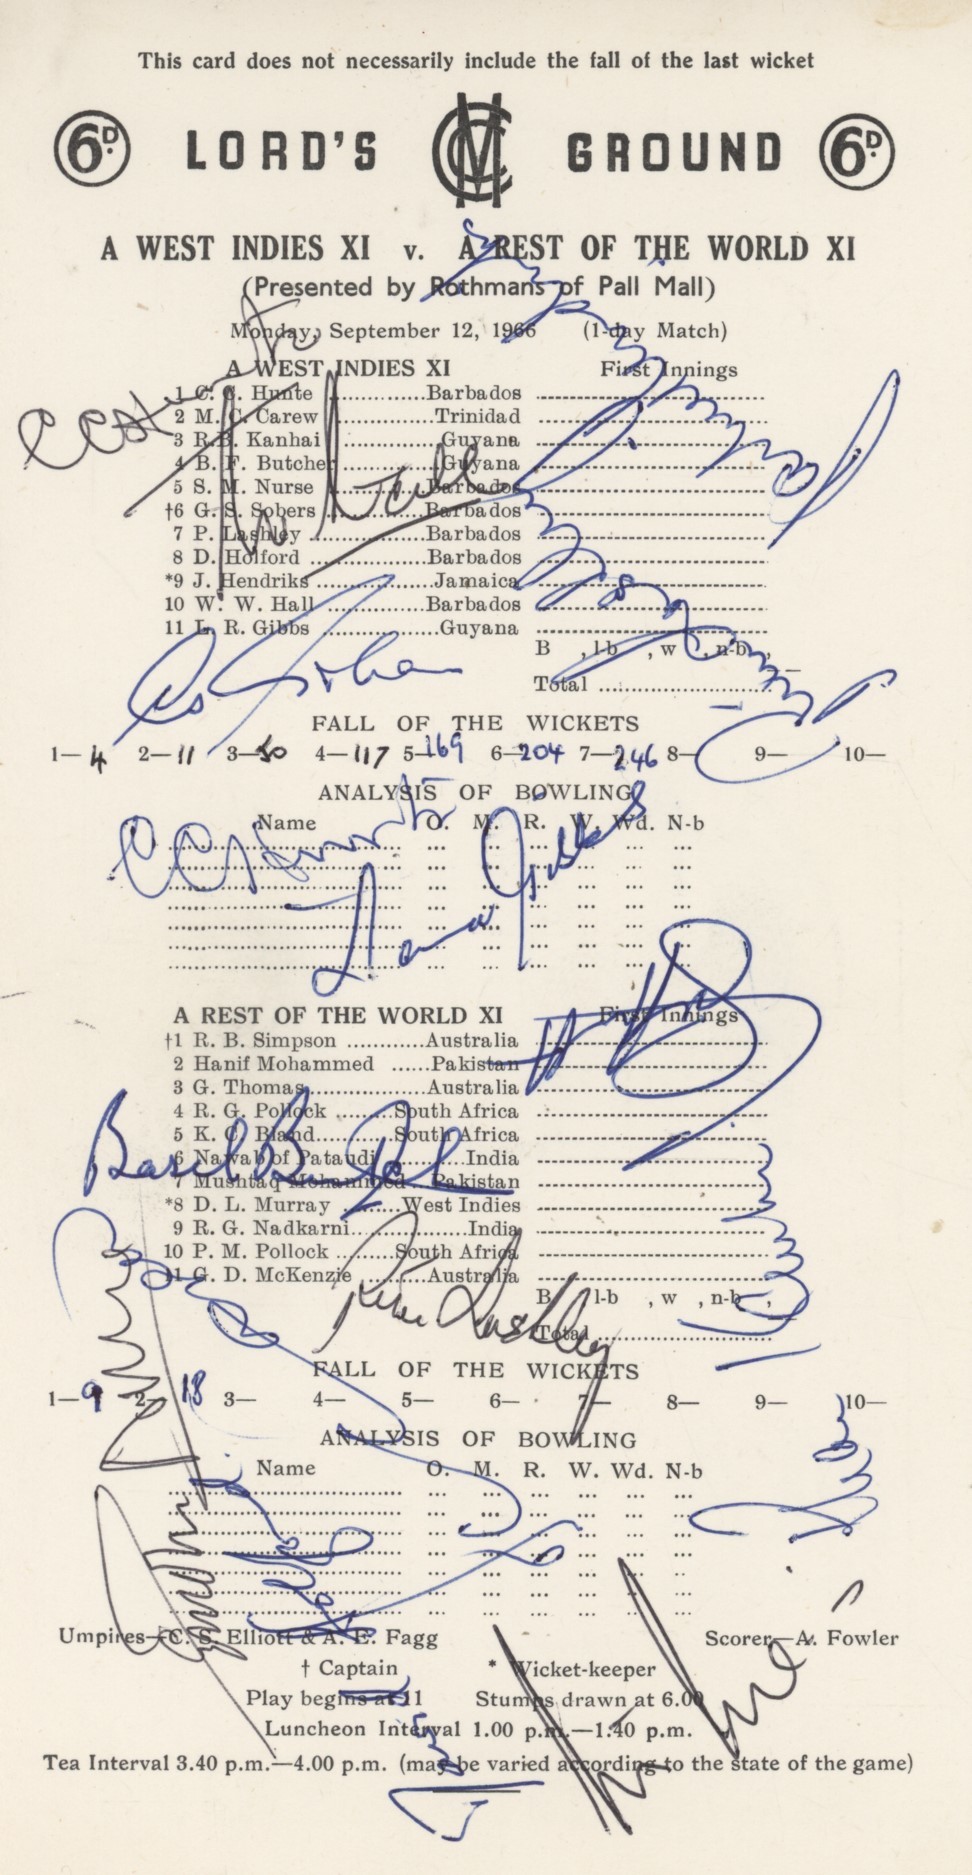 This card does not necessarily include the fall of the last wicket
6D. LORD'S MCC GROUND 6D.
A WEST INDIES XI v. A REST OF THE WORLD XI
(Presented by Rothmans of Pall Mall)
Monday, September 12, 1966 (1-day Match)
A WEST INDIES XI First Innings
1 C. C. Hunte ..............Barbados
2 M. C. Carew ..............Trinidad
3 R.B. Kanhai ..............Guyana
4 B. F. Butcher ..............Guyana
5 S. M. Nurse ..............Barbados
†6 G. S. Sobers ..............Barbados
7 P. Lashley ..............Barbados
8 D. Holford ..............Barbados
*9 J. Hendriks ..............Jamaica
10 W. W. Hall ..............Barbados
11 L. R. Gibbs ..............Guyana
B , l-b , w , n-b ,
Total ........................
FALL OF THE WICKETS
1—4 2—11 3—50 4—117 5—169 6—204 7—246 8— 9— 10—
ANALYSIS OF BOWLING
Name O. M. R. W. Wd. N-b
CC Hunte
Lance Gibbs
A REST OF THE WORLD XI First Innings
†1 R. B. Simpson ............Australia
2 Hanif Mohammed ......Pakistan
3 G. Thomas..............Australia
4 R. G. Pollock .........South Africa
5 K. C. Bland............South Africa
6 Nawab of Pataudi............India
7 Mushtaq Mohammed...Pakistan
*8 D. L. Murray .........West Indies
9 R. G. Nadkarni................India
10 P. M. Pollock .........South Africa
11 G. D. McKenzie .........Australia
Basil B.
Peter Lashley
B , l-b , w , n-b ,
Total ........................
FALL OF THE WICKETS
1—9 2—18 3— 4— 5— 6— 7— 8— 9— 10—
ANALYSIS OF BOWLING
Name O. M. R. W. Wd. N-b
Umpires—C. S. Elliott & A. E. Fagg Scorer—A. Fowler
† Captain * Wicket-keeper
Play begins at 11 Stumps drawn at 6.00
Luncheon Interval 1.00 p.m.—1.40 p.m.
Tea Interval 3.40 p.m.—4.00 p.m. (may be varied according to the state of the game)